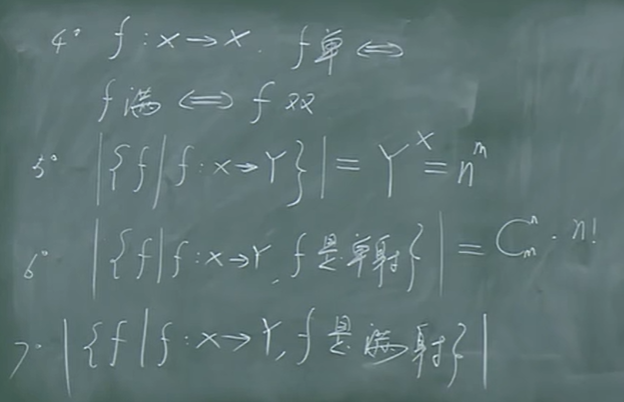 4° f:X→X. f单⟺
f满⟺f双
5° |{f|f:X→Y}|=Y^X=n^m
6° |{f|f:X→Y,f是单射}|=C_m^n·n!
7° |{f|f:X→Y,f是满射}|